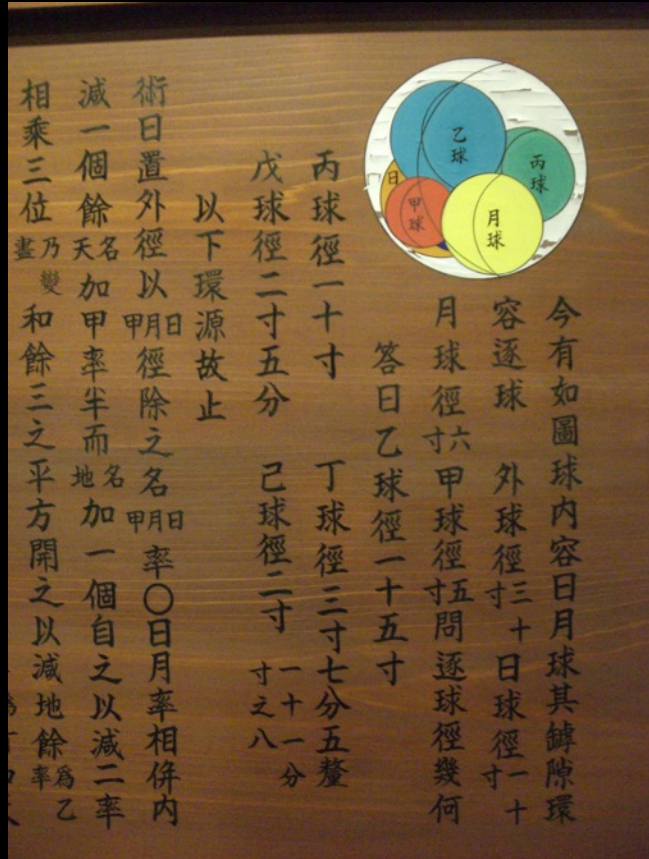 乙球
丙球
日
甲球
月球
今有如圖球内容日月球其罅隙環
容逐球 外球徑三十寸日球徑一十寸
月球徑六寸甲球徑五寸問逐球徑幾何
答曰乙球徑一十五寸
丙球徑一十寸 丁球徑三寸七分五釐
戊球徑二寸五分 己球徑二寸一十一分寸之八
以下環源故止
術曰置外徑以日月甲徑除之名日月甲率〇日月率相併内
減一個餘名天加甲率半而名地加一個自之以減二率
相乘三位乃變盡和餘三之平方開之以減地餘爲乙率